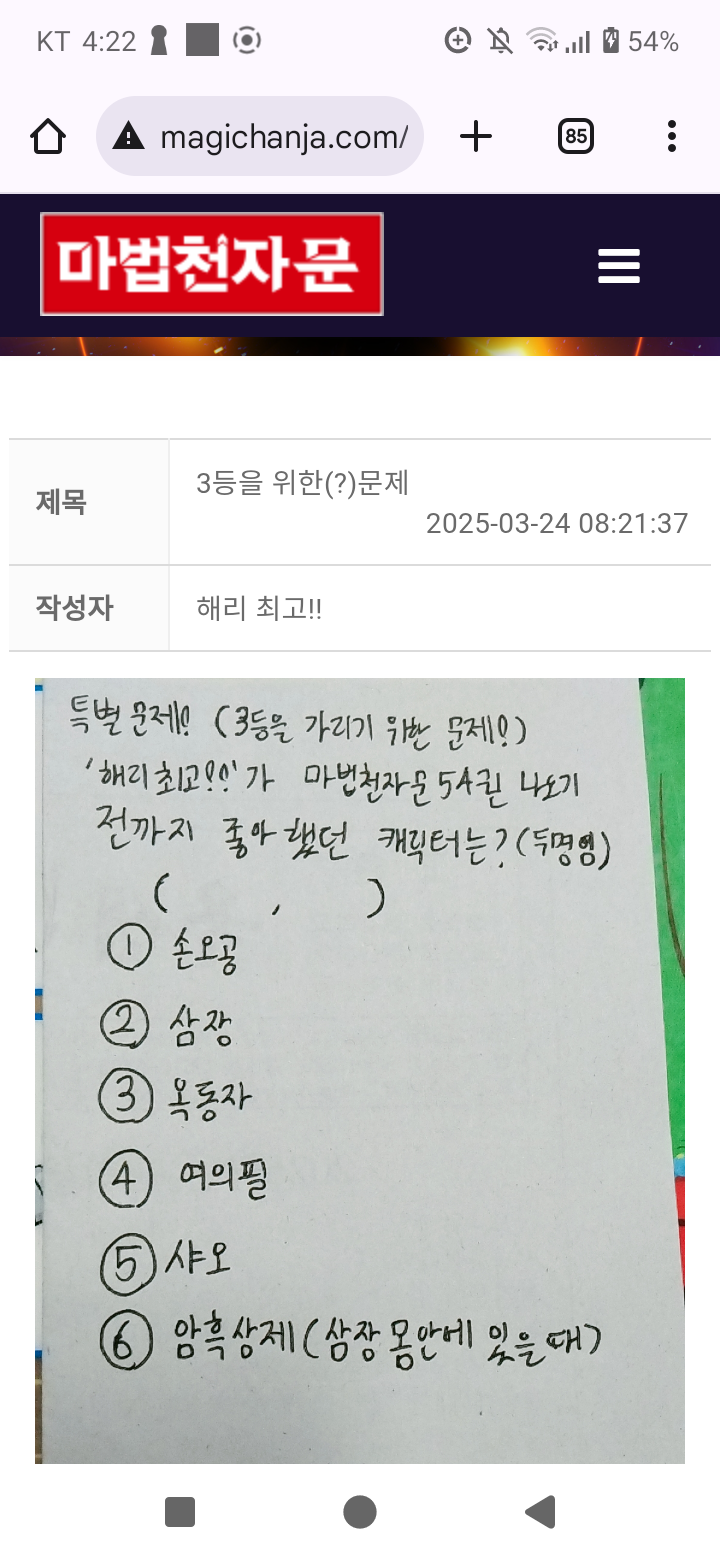 KT 4:22 54%
magichanja.com/ 85
마법천자문
제목 3등을 위한(?)문제
2025-03-24 08:21:37
작성자 해리 최고!!
특별 문제! (3등을 가리기 위한 문제!)
'해리 최고!!'가 마법천자문 54권 나오기
전까지 좋아했던 캐릭터는? (두명임)
( , )
① 손오공
② 삼장
③ 옥동자
④ 여의필
⑤ 샤오
⑥ 암흑상제(삼장 몸안에 있을 때)